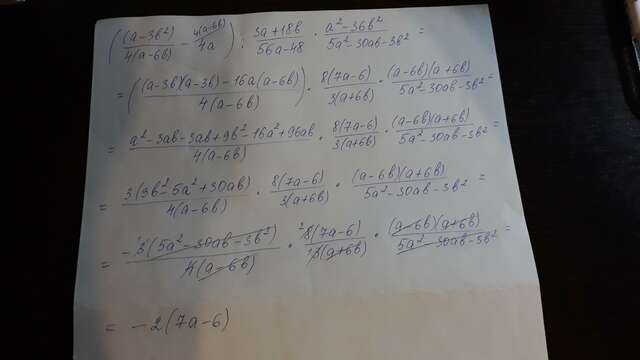 ((a-3b²)/(4(a-6b)) - 4(a-6b)/(4a)) : (3a+18b)/(56a-48) · (a²-36b²)/(5a²-30ab-3b²) =
= (((a-3b)(a-3b)-16a(a-6b))/(4(a-6b))) · 8(7a-6)/(3(a+6b)) · (a-6b)(a+6b)/(5a²-30ab-3b²) =
= (a²-3ab-3ab+9b²-16a²+96ab)/(4(a-6b)) · 8(7a-6)/(3(a+6b)) · (a-6b)(a+6b)/(5a²-30ab-3b²) =
= 3(3b²-5a²+30ab)/(4(a-6b)) · 8(7a-6)/(3(a+6b)) · (a-6b)(a+6b)/(5a²-30ab-3b²) =
= -¹3(5a²-30ab-3b²)/(4(a-6b)) · ²8(7a-6)/(¹3(a+6b)) · (a-6b)(a+6b)/(5a²-30ab-3b²) =
= -2(7a-6)